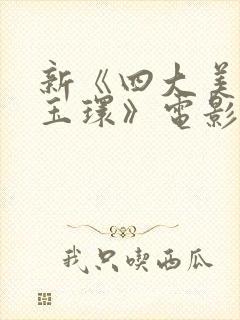 新《四大美
玉環》電影
我只喫西瓜